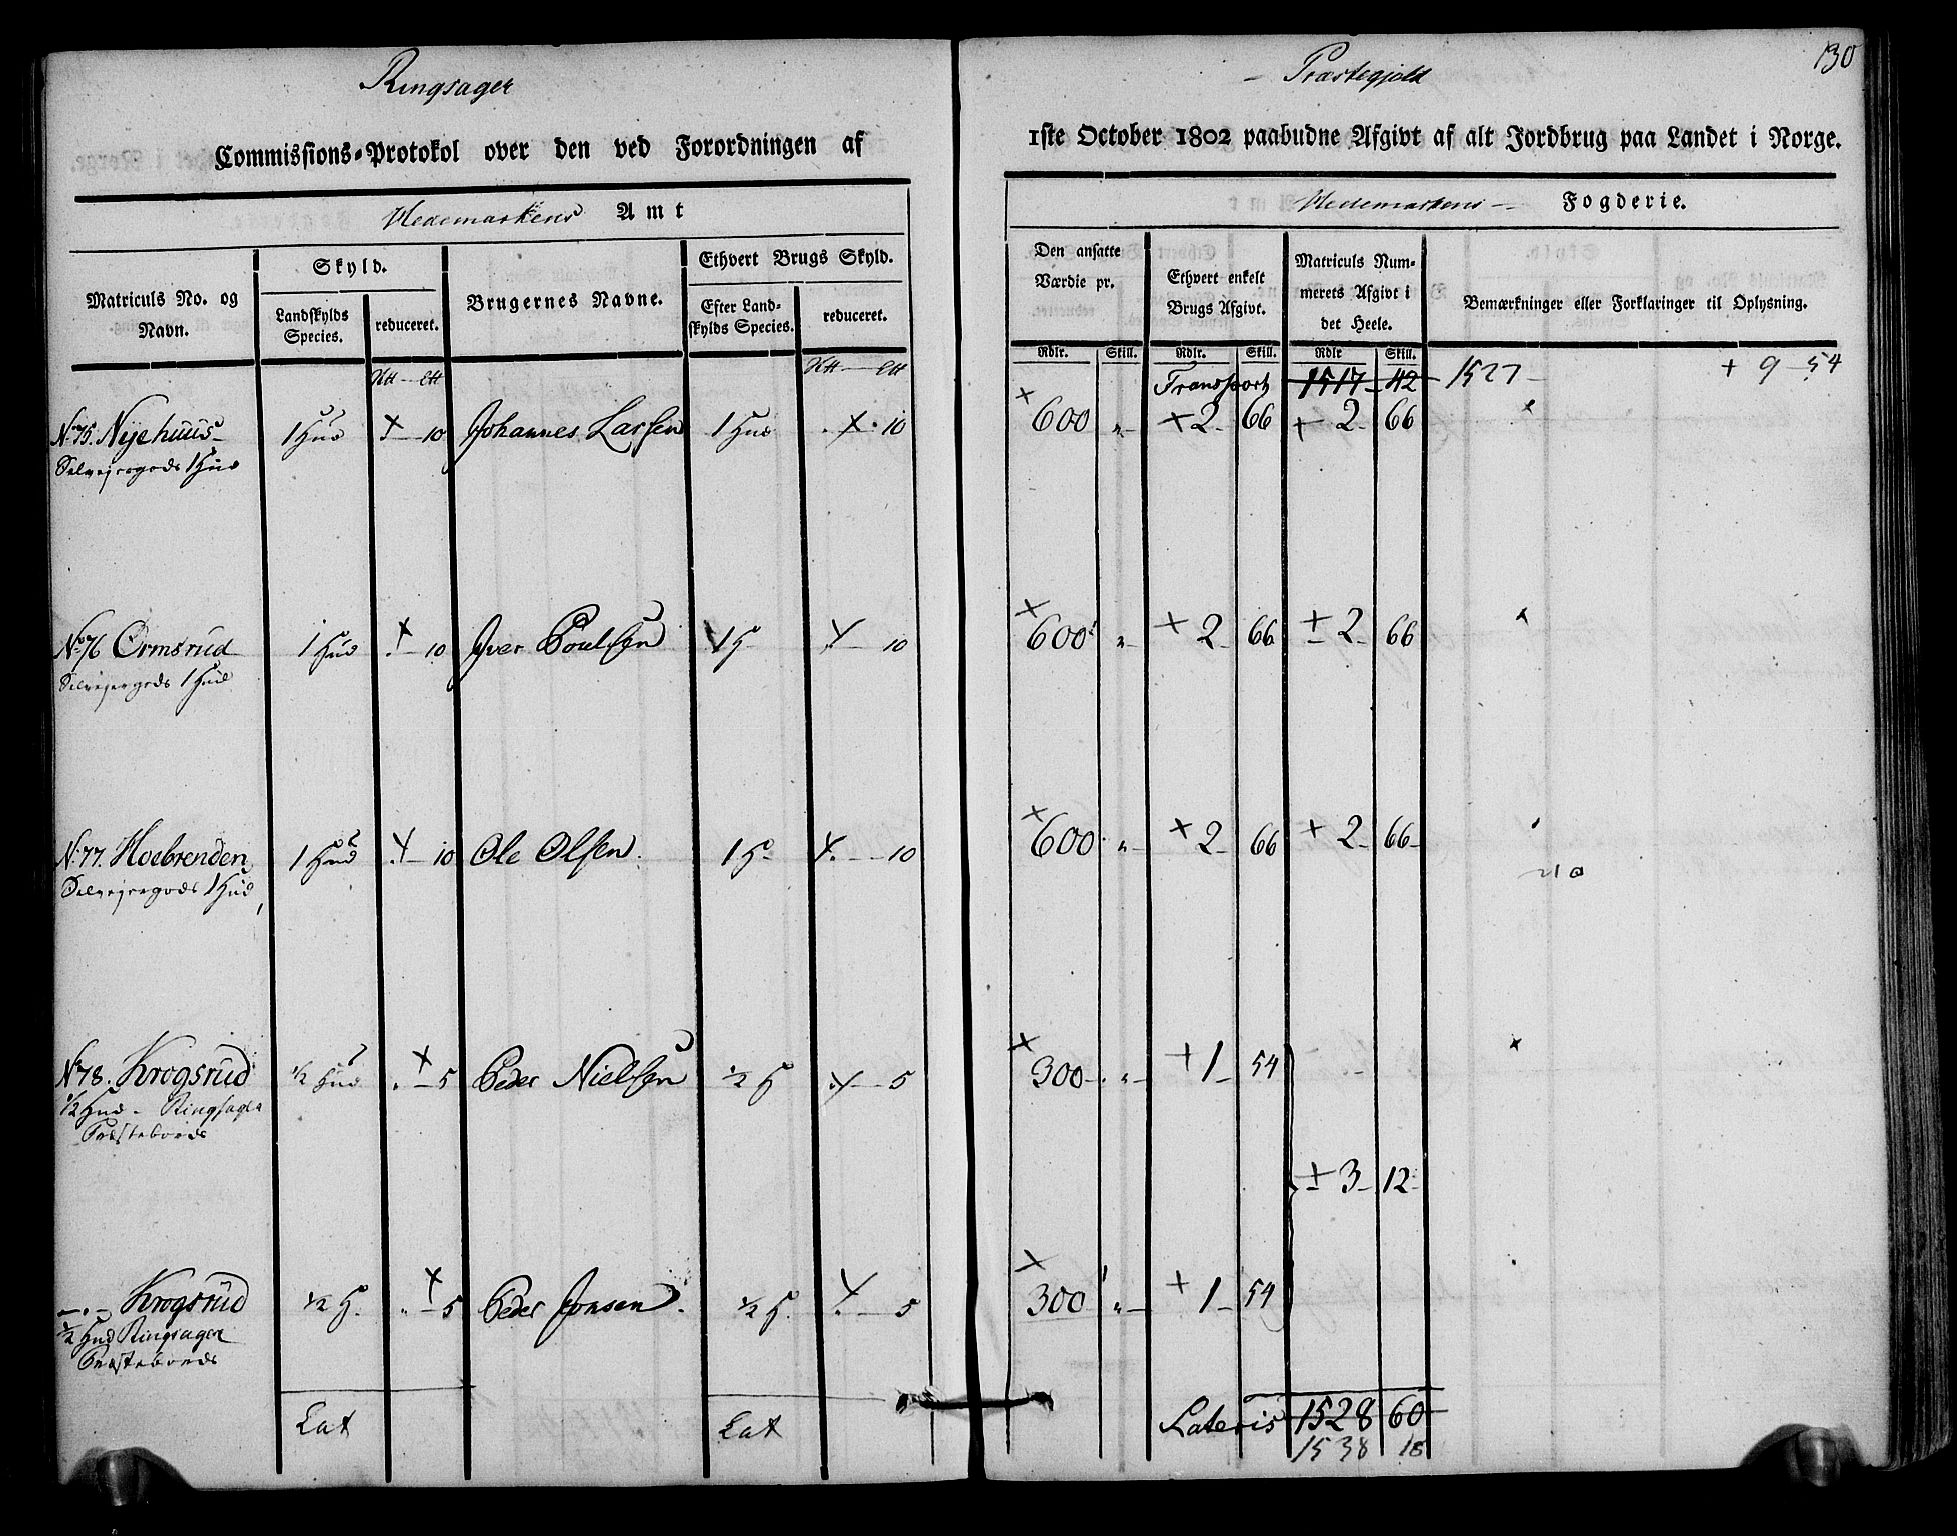 Ringsager
Commissions-Protokol over den ved Forordningen af
Hedemarkens Amt
Matriculs No. og Navn.
Skyld.
Landskylds Species.
reduceret.
Brugernes Navne.
Ethvert Brugs Skyld.
Efter Landskylds Species.
reduceret.
No 75. Nyehuus 1 Hud 10 Johannes Larsen 1 Hud 10
Selvejergods 1 Hud
No 76 Ormsrud 1 Hud 10 Iver Poulsen 1 H 10
Selvejergods 1 Hud
No 77. Hoebrenden 1 Hud 10 Ole Olsen. 1 H 10
Selvejergods 1 Hud
No 78. Krogsrud ½ Hud 5 Peder Nielsen ½ H 5
½ Hud - Ringsager
Præstebords
Krogsrud ½ H. 5 Peder Jonsen. ½ H. 5
½ Hud Ringsager
Præstebords
Lat Lat
130
Præstegjeld
1ste October 1802 paabudne Afgivt af alt Jordbrug paa Landet i Norge.
Hedemarkens Fogderie.
Den ansatte Værdie pr.
Ethvert enkelt Brugs Afgivt.
Matriculs Nummerets Afgivt i det Heele.
Bemærkninger eller Forklaringer til Oplysning.
Rdlr. Skill. Rdlr. Skill. Rdlr Skill.
Transport 1517 42 1527 + 9 54
600 2 66 2 66
600 2 66 2 66
600 2 66 2 66
300 1 54
3 12
300 1 54
Lateris 1528 60
1538 18